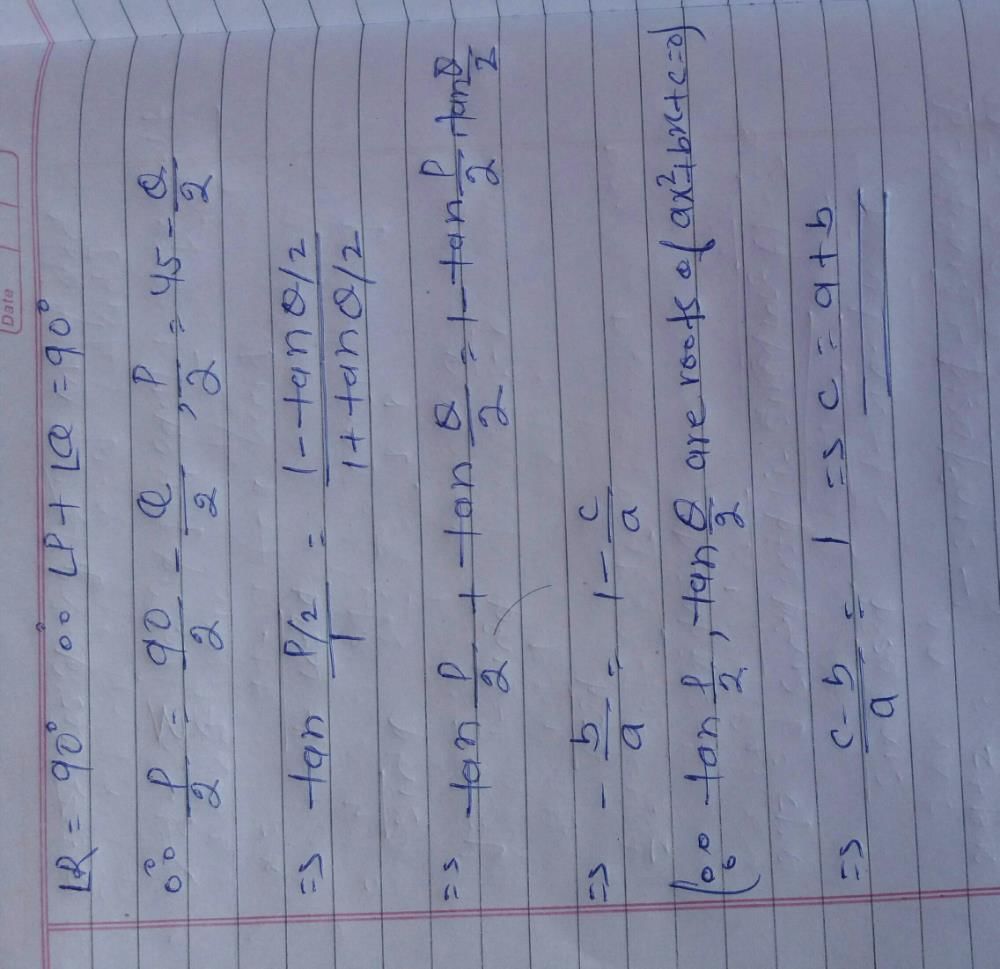 Date
∠R = 90° ∴ ∠P + ∠Q = 90°
∴ P/2 = 90/2 - Q/2 , P/2 = 45 - Q/2
⇒ tan P/2 / 1 = 1 - tan Q/2 / 1 + tan Q/2
⇒ tan P/2 + tan Q/2 = 1 - tan P/2 tan Q/2
⇒ - b/a = 1 - c/a
(∵ tan P/2 , tan Q/2 are roots of ax² + bx + c = 0)
⇒ c - b / a = 1 ⇒ c = a + b